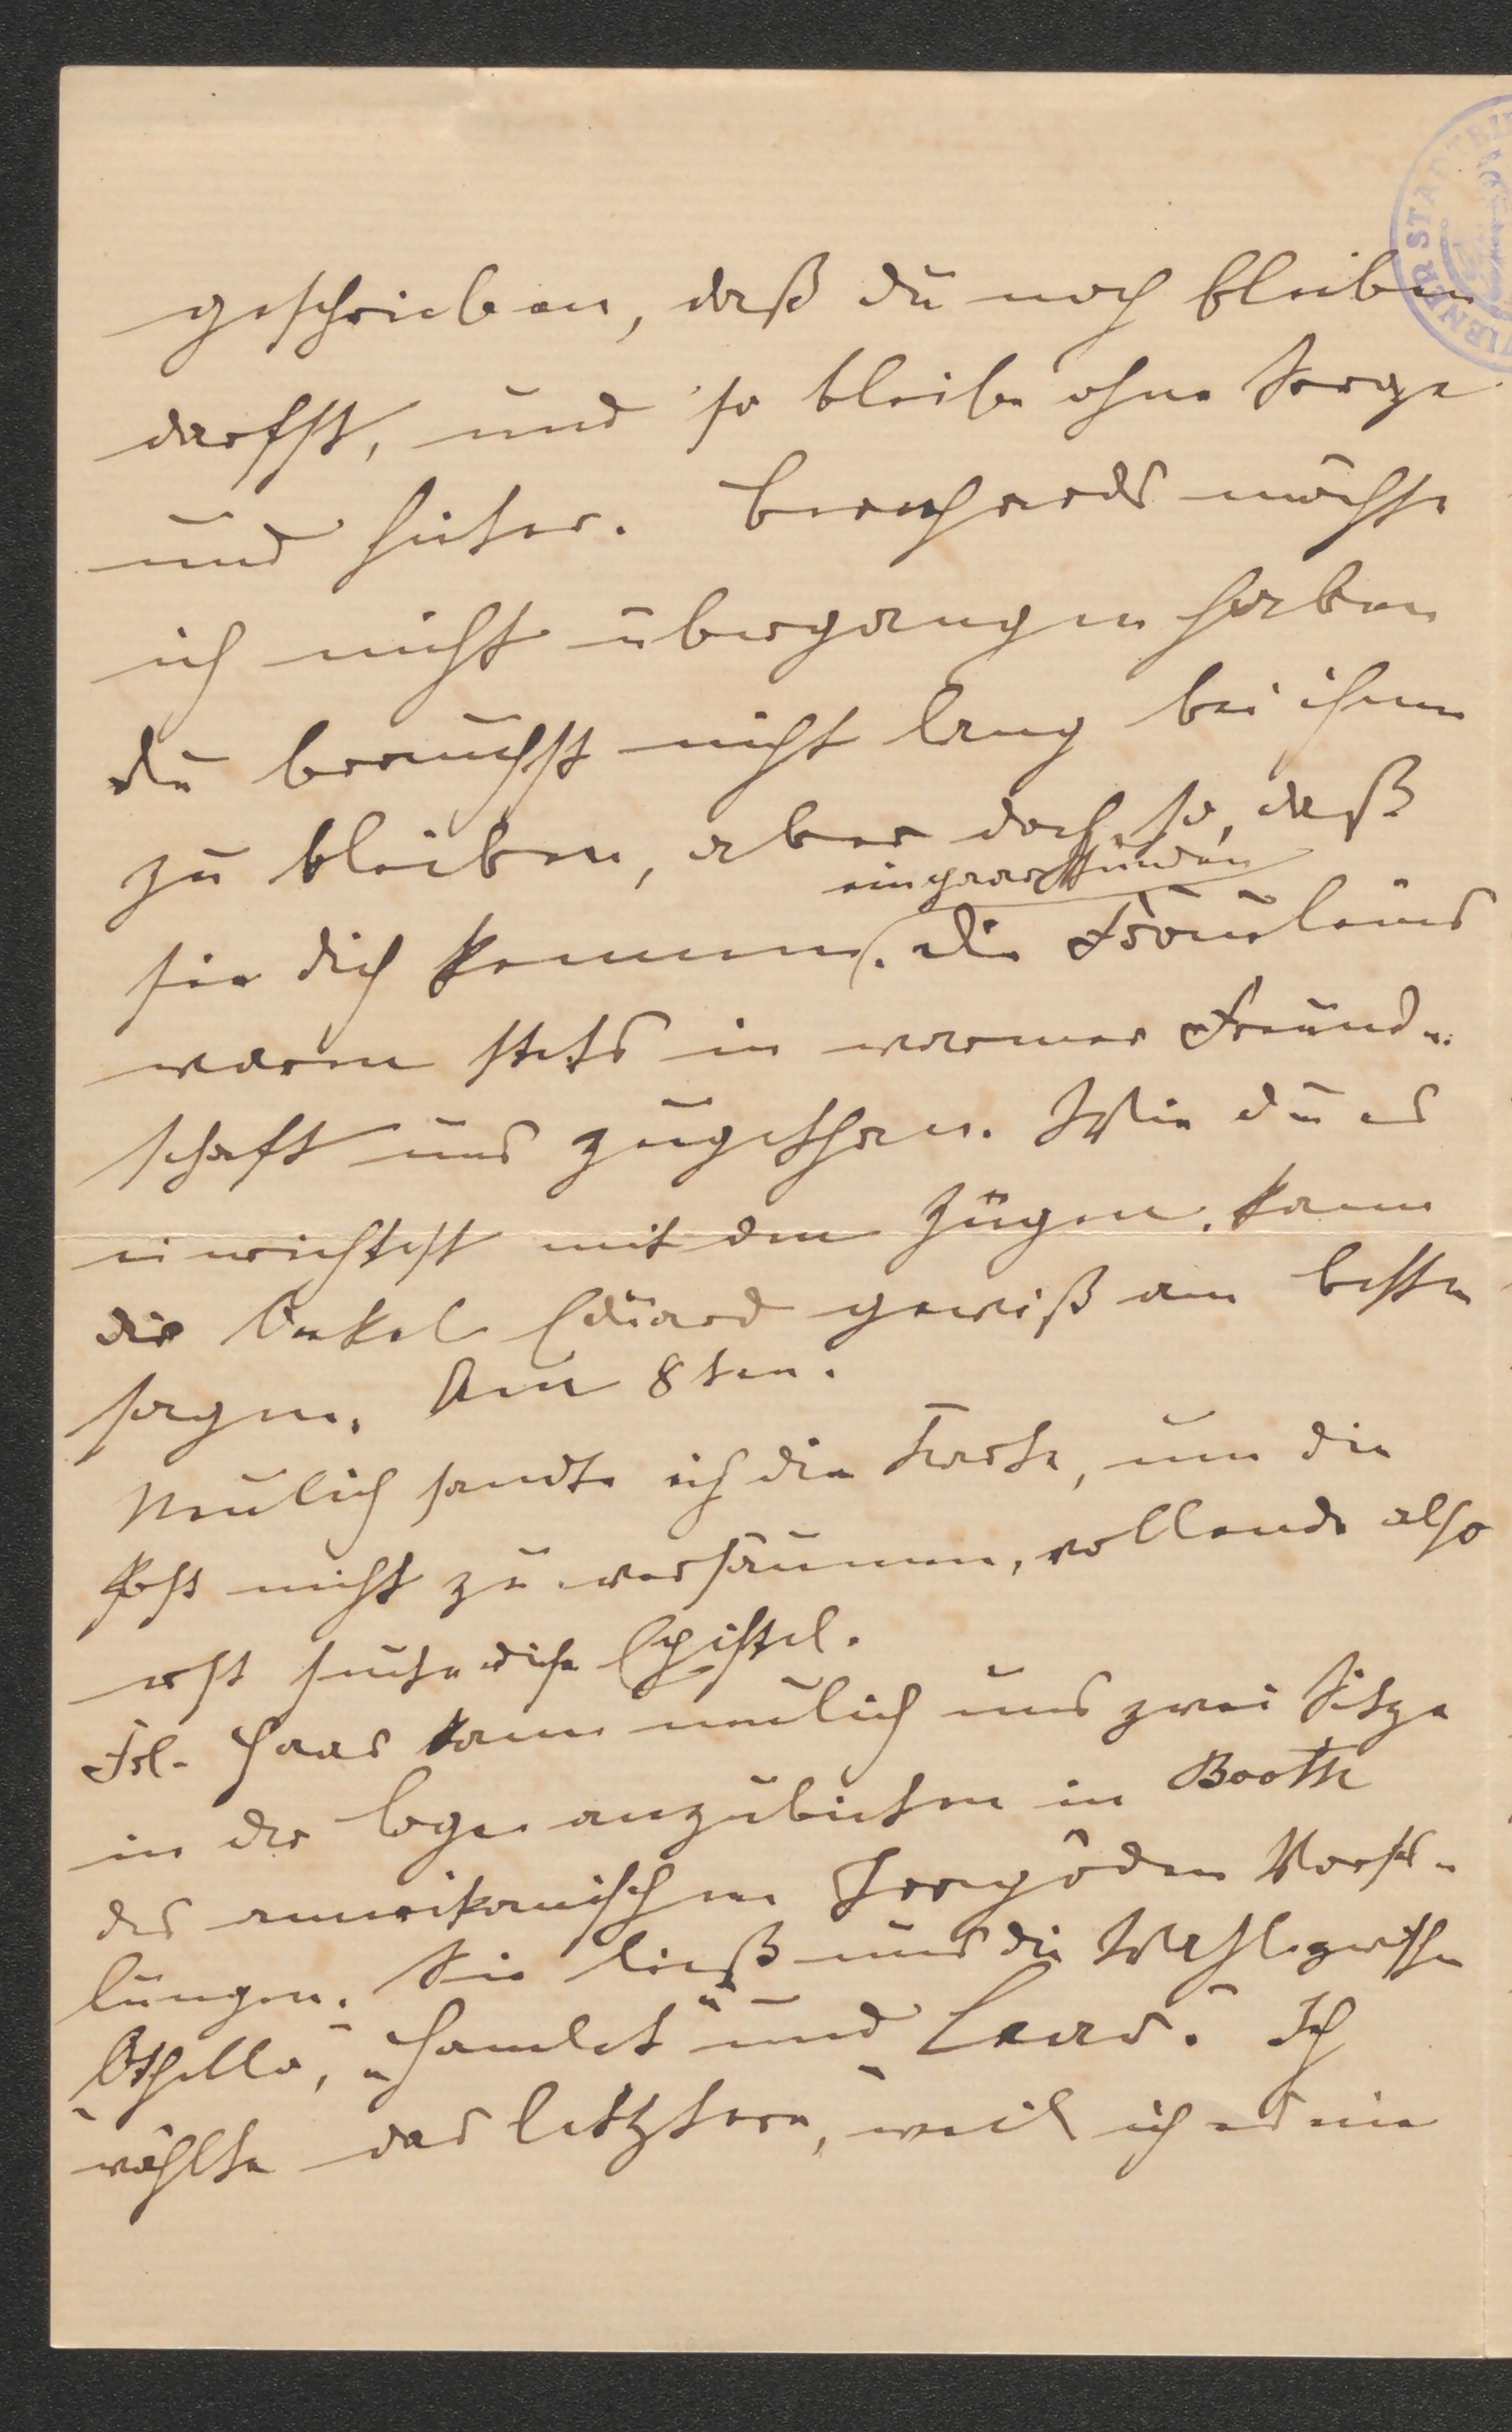 geschrieben, daß du noch bleiben
darfst, und so bleibe ohne Sorge
und heiter. Bernhards möchte
ich nicht übergangen haben
du brauchst nicht lang bei ihnen
zu bleiben, aber doch so, daß
ein paar Stunden
sie dich kennen. Die Fräuleins
waren stets in warmer Freund-
schaft uns zugethan. Wie du es
einrichtest mit den Zügen, kann
dir Onkel Eduard gewiß am besten
sagen. Am 8ten.
Neulich sandte ich die Karte, um die
Post nicht zu versäumen, vollende also
erst heute diese Epistel.
Frl. Haas kam neulich uns zwei Sitze
in der Loge anzubieten in Booth
des amerikanischen Tragöden Vorstel-
lungen. Sie ließ uns die Wahl zwischen
Othello, „Hamlet“ und „Lear“. Ich
wählte das letztere, weil ich es nie
WIENER STADTBI